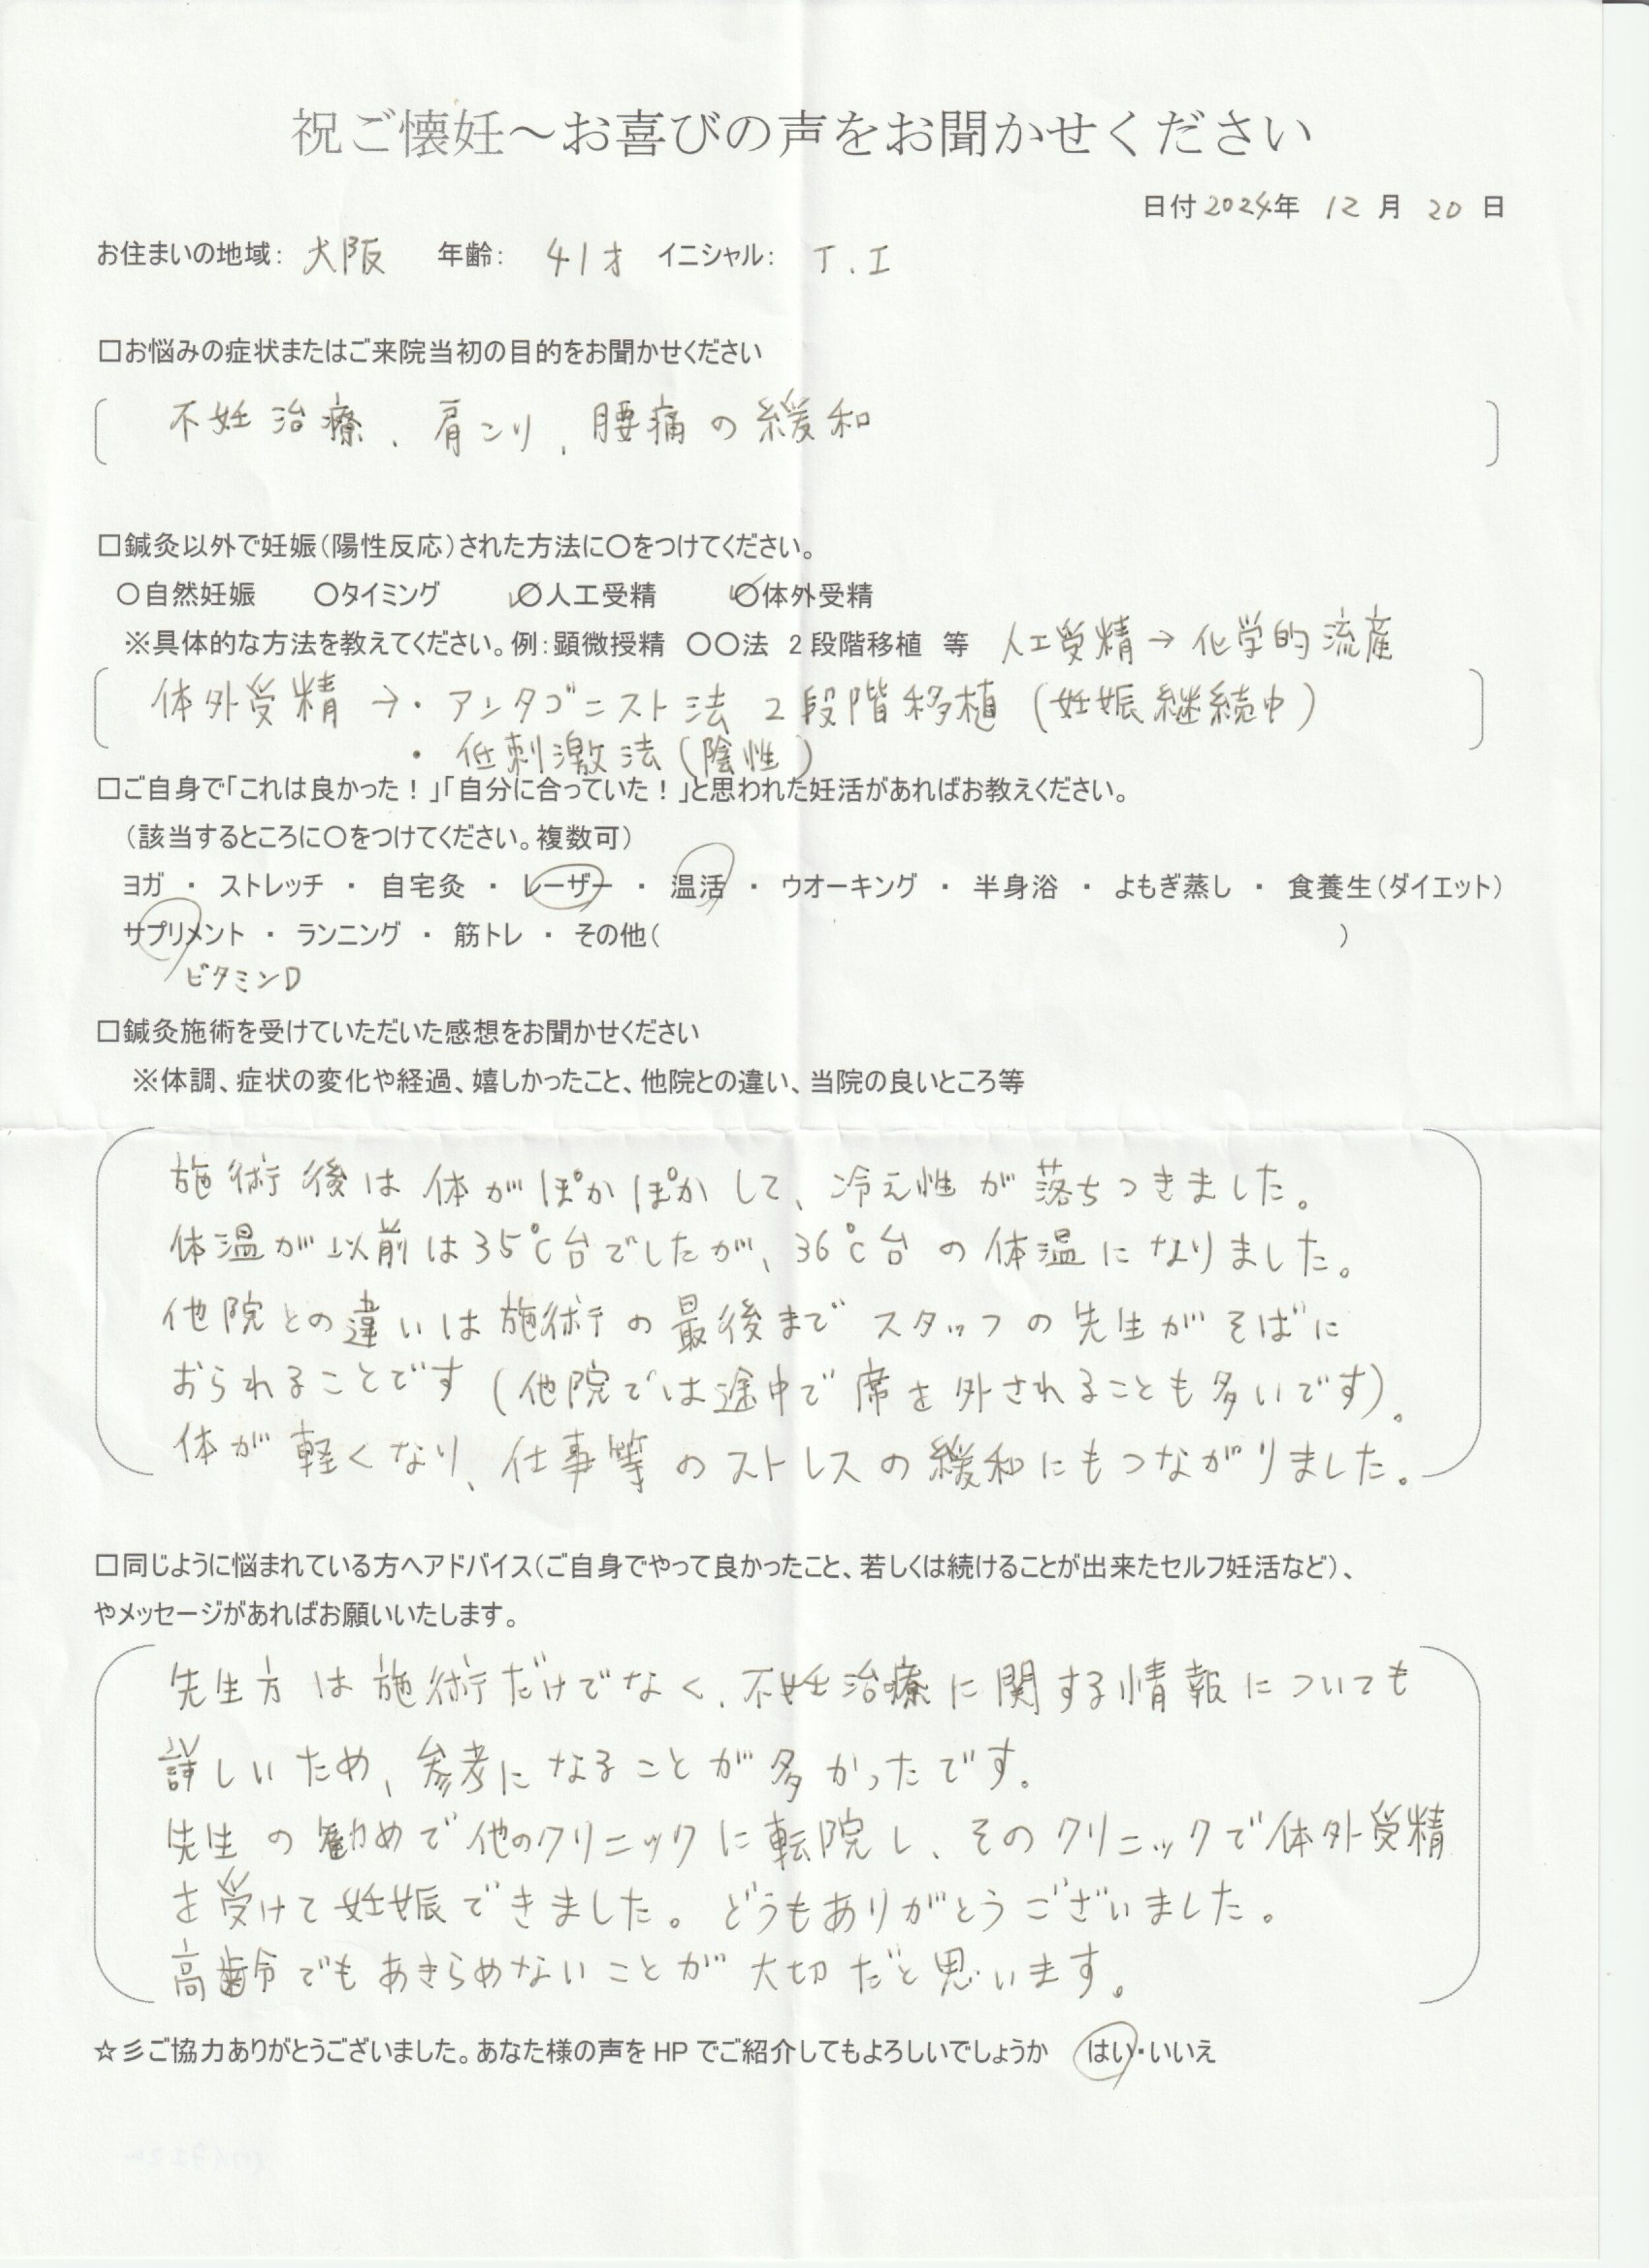 祝ご懐妊～お喜びの声をお聞かせください
日付 2024年 12 月 20 日
お住まいの地域： 大阪 年齢： 41才 イニシャル： T.I
□お悩みの症状またはご来院当初の目的をお聞かせください
不妊治療、肩こり、腰痛の緩和
□鍼灸以外で妊娠（陽性反応）された方法に〇をつけてください。
〇自然妊娠 〇タイミング 〇人工受精 〇体外受精
※具体的な方法を教えてください。例：顕微授精 〇〇法 2段階移植 等 人工受精→化学的流産
体外受精→・アンタゴニスト法 2段階移植（妊娠継続中）
・低刺激法（陰性）
□ご自身で「これは良かった！」「自分に合っていた！」と思われた妊活があればお教えください。
（該当するところに〇をつけてください。複数可）
ヨガ ・ ストレッチ ・ 自宅灸 ・ レーザー ・ 温活 ・ ウオーキング ・ 半身浴 ・ よもぎ蒸し ・ 食養生（ダイエット）
サプリメント ・ ランニング ・ 筋トレ ・ その他（ ）
ビタミンD
□鍼灸施術を受けていただいた感想をお聞かせください
※体調、症状の変化や経過、嬉しかったこと、他院との違い、当院の良いところ等
施術後は体がぽかぽかして、冷え性が落ちつきました。
体温が以前は35℃台でしたが、36℃台の体温になりました。
他院との違いは施術の最後までスタッフの先生がそばに
おられることです（他院では途中で席を外されることも多いです）。
体が軽くなり、仕事等のストレスの緩和にもつながりました。
□同じように悩まれている方へアドバイス（ご自身でやって良かったこと、若しくは続けることが出来たセルフ妊活など）、
やメッセージがあればお願いいたします。
先生方は施術だけでなく、不妊治療に関する情報についても
詳しいため、参考になることが多かったです。
先生の勧めで他のクリニックに転院し、そのクリニックで体外受精
を受けて妊娠できました。どうもありがとうございました。
高齢でもあきらめないことが大切だと思います。
☆彡ご協力ありがとうございました。あなた様の声を HP でご紹介してもよろしいでしょうか はい・いいえ